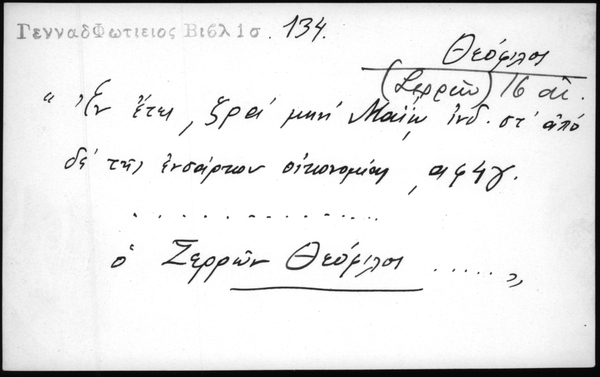 ΓενναδΦωτιειος Βιβλ 1σ. 134.
Θεόφιλος
(Σερρῶν) 16 αἰ.
"Ἐν ἔτει, ζραʹ μηνί Μαίῳ ἰνδ. στʹ ἀπό
δέ τῆς ἐνσάρκου οἰκονομίας, αφ4γ.
. . . . . . . . . . . . .
ὁ Σερρῶν Θεόφιλος ....."